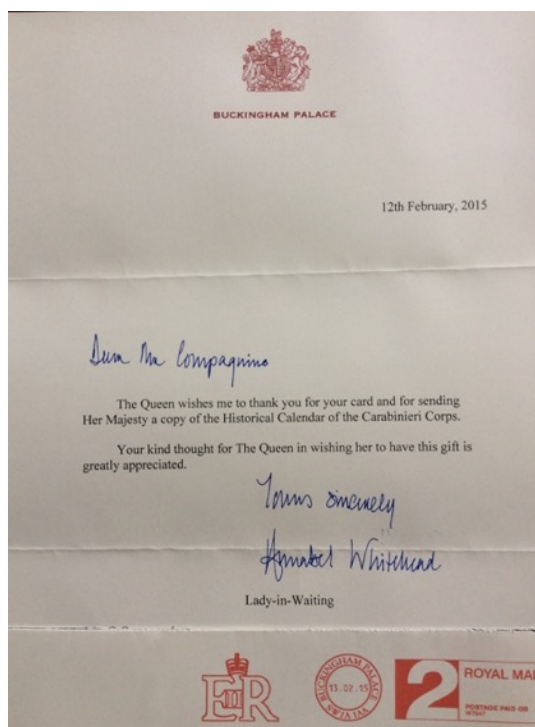 BUCKINGHAM PALACE
12th February, 2015
Dear Mr Compagnino
The Queen wishes me to thank you for your card and for sending
Her Majesty a copy of the Historical Calendar of the Carabinieri Corps.
Your kind thought for The Queen in wishing her to have this gift is
greatly appreciated.
Yours sincerely
Annabel Whitehead
Lady-in-Waiting
E II R
BUCKINGHAM PALACE
13.02.15
SW1A 1AA
2
ROYAL MAI
POSTAGE PAID GB